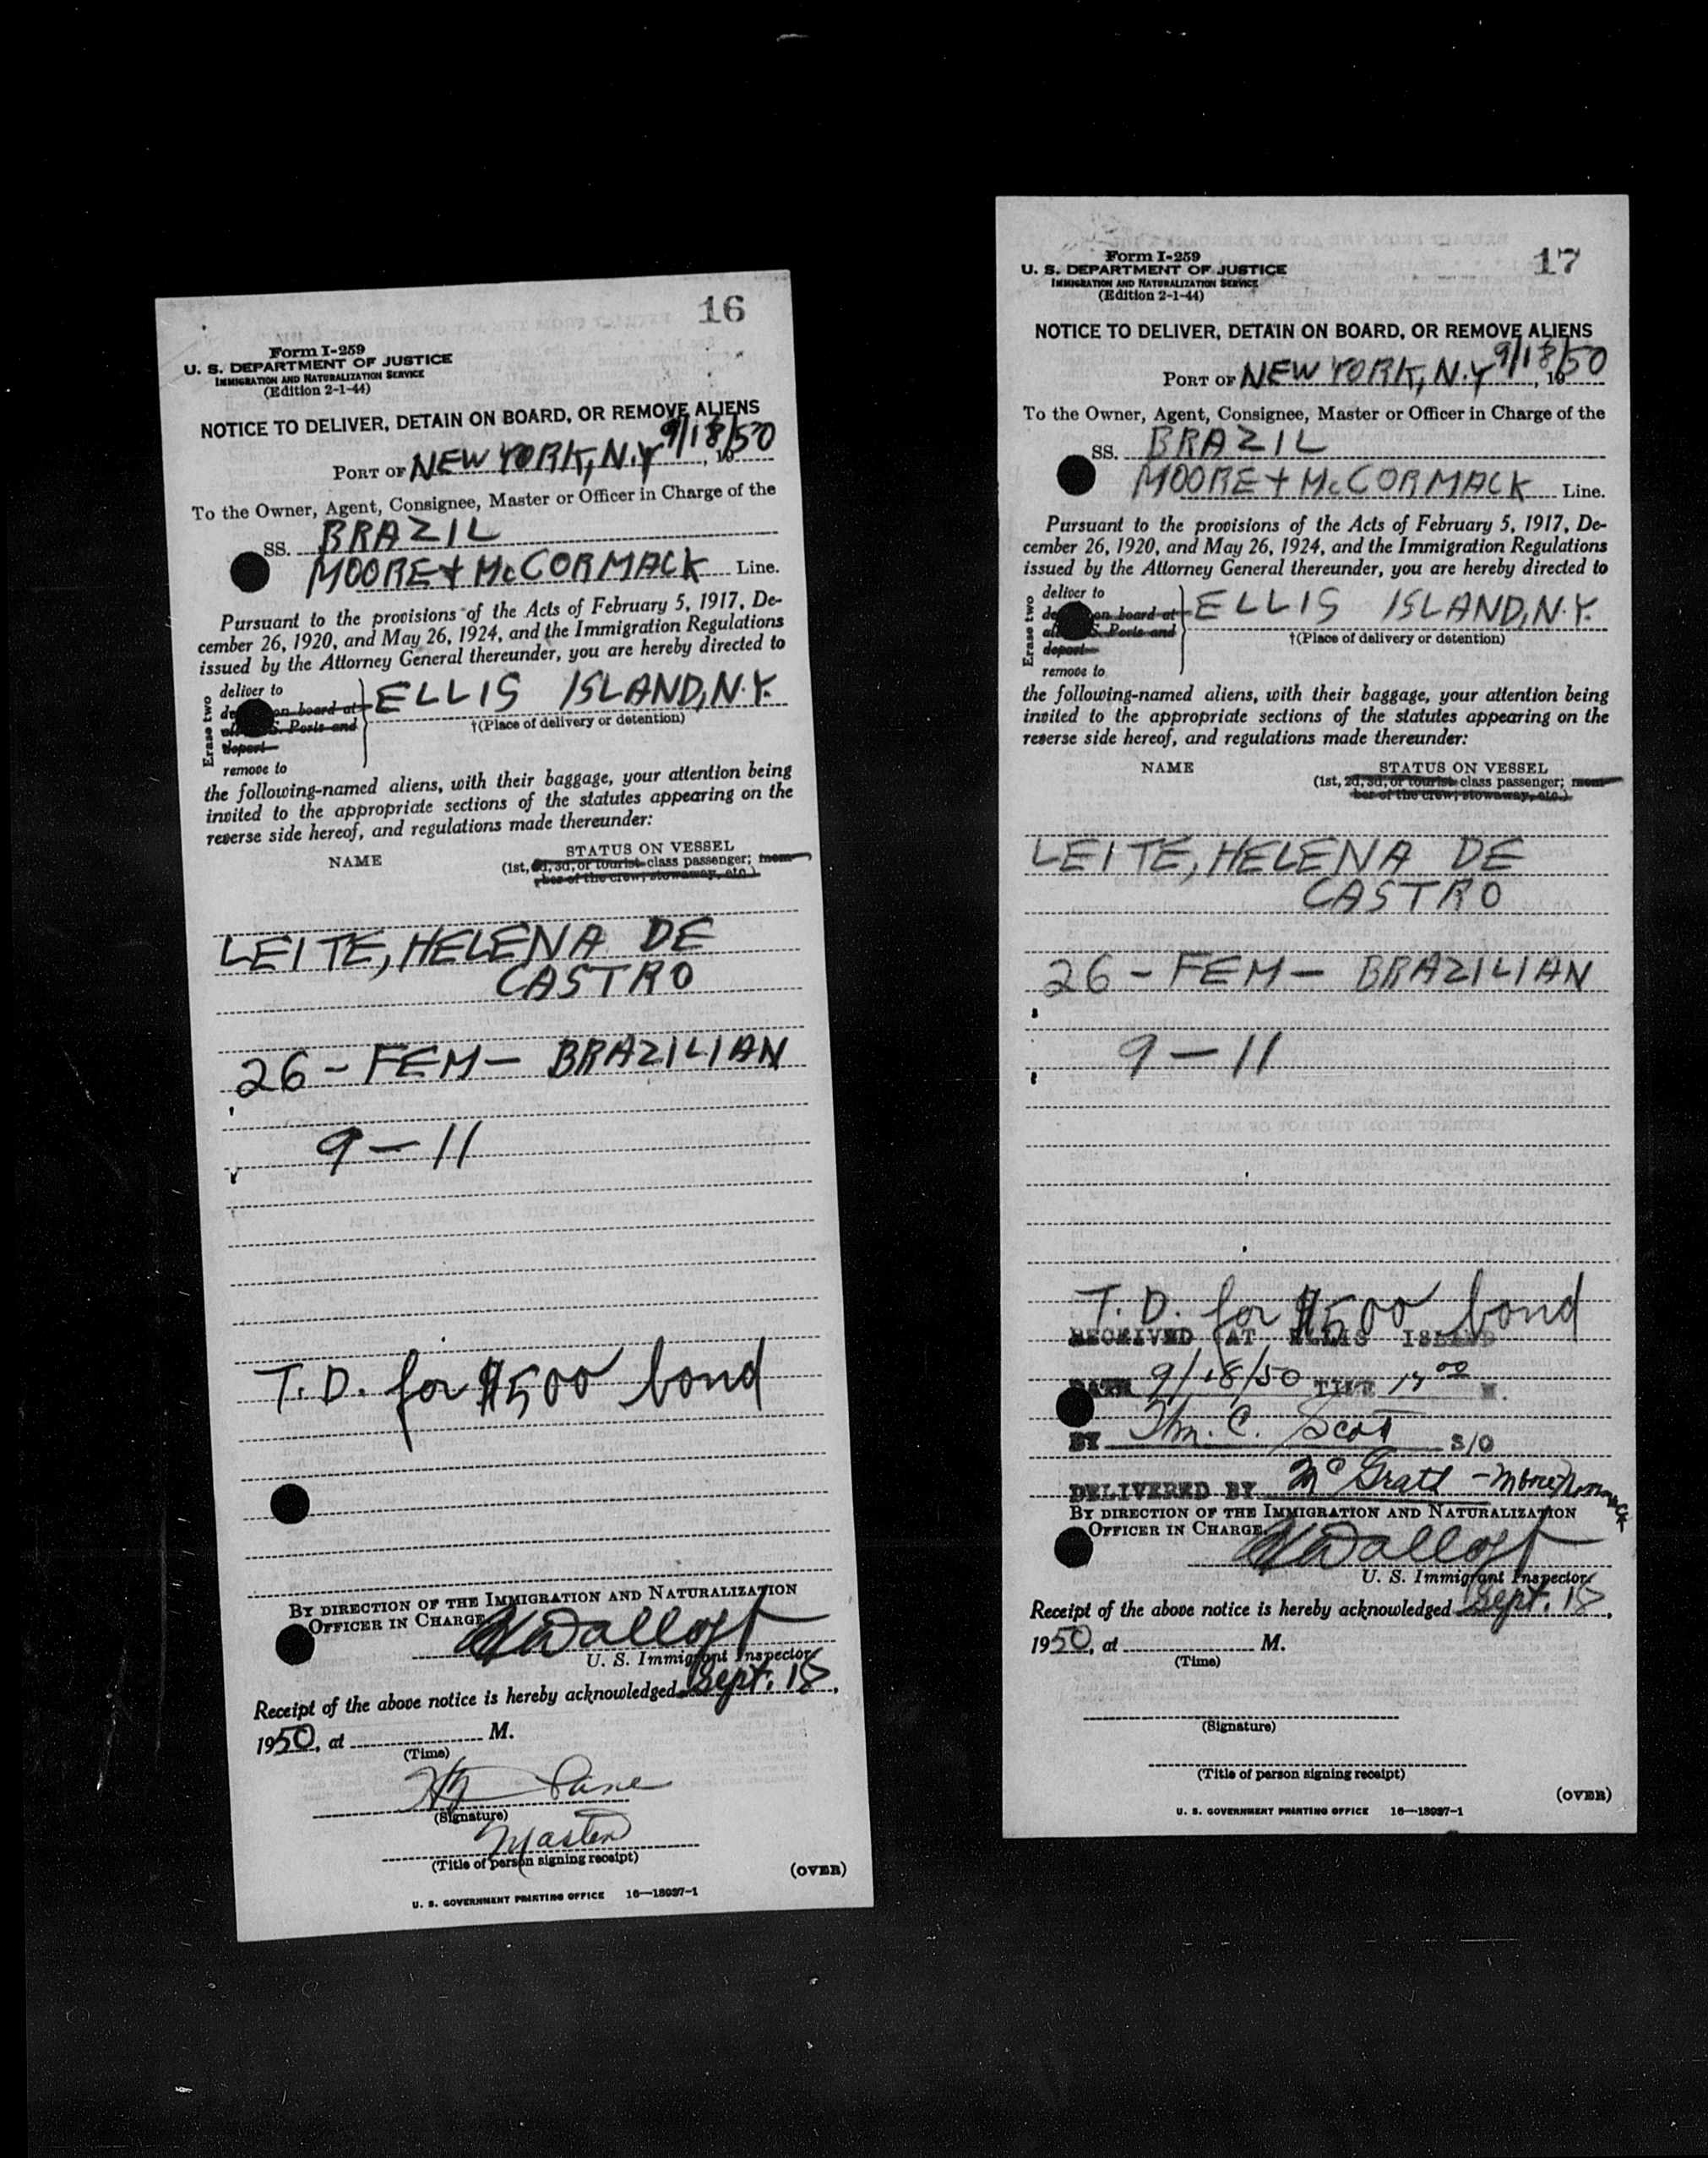 16
Form I-259
U. S. DEPARTMENT OF JUSTICE
IMMIGRATION AND NATURALIZATION SERVICE
(Edition 2-1-44)
NOTICE TO DELIVER, DETAIN ON BOARD, OR REMOVE ALIENS
PORT OF NEW YORK, N.Y 9/18/50, 19
To the Owner, Agent, Consignee, Master or Officer in Charge of the
SS. BRAZIL
MOORE + McCORMACK Line.
Pursuant to the provisions of the Acts of February 5, 1917, De-
cember 26, 1920, and May 26, 1924, and the Immigration Regulations
issued by the Attorney General thereunder, you are hereby directed to
Erase two
deliver to
on board at ELLIS ISLAND, N.Y.
S. Ports and †(Place of delivery or detention)
depart
remove to
the following-named aliens, with their baggage, your attention being
invited to the appropriate sections of the statutes appearing on the
reverse side hereof, and regulations made thereunder:
NAME STATUS ON VESSEL
(1st, 2d, 3d, or tourist class passenger; mem-
ber of the crew; stowaway, etc.)
LEITE, HELENA DE
CASTRO
26 - FEM - BRAZILIAN
9 - 11
T. D. for $500 bond
BY DIRECTION OF THE IMMIGRATION AND NATURALIZATION
OFFICER IN CHARGE
U. S. Immigrant Inspector
Receipt of the above notice is hereby acknowledged Sept. 18,
1950, at M.
(Time)
(Signature)
Master
(Title of person signing receipt)
(OVER)
U. S. GOVERNMENT PRINTING OFFICE 16—18037-1
17
Form I-259
U. S. DEPARTMENT OF JUSTICE
IMMIGRATION AND NATURALIZATION SERVICE
(Edition 2-1-44)
NOTICE TO DELIVER, DETAIN ON BOARD, OR REMOVE ALIENS
PORT OF NEW YORK, N.Y 9/18/50, 19
To the Owner, Agent, Consignee, Master or Officer in Charge of the
SS. BRAZIL
MOORE + McCORMACK Line.
Pursuant to the provisions of the Acts of February 5, 1917, De-
cember 26, 1920, and May 26, 1924, and the Immigration Regulations
issued by the Attorney General thereunder, you are hereby directed to
Erase two
deliver to
on board at ELLIS ISLAND, N.Y.
S. Ports and †(Place of delivery or detention)
depart
remove to
the following-named aliens, with their baggage, your attention being
invited to the appropriate sections of the statutes appearing on the
reverse side hereof, and regulations made thereunder:
NAME STATUS ON VESSEL
(1st, 2d, 3d, or tourist class passenger; mem-
ber of the crew; stowaway, etc.)
LEITE, HELENA DE
CASTRO
26 - FEM - BRAZILIAN
9 - 11
T. D. for $500 bond
RECEIVED AT ELLIS ISLAND
DATE 9/18/50 TIME M.
BY C. Scott S/O
DELIVERED BY McGrath
BY DIRECTION OF THE IMMIGRATION AND NATURALIZATION
OFFICER IN CHARGE
U. S. Immigrant Inspector
Receipt of the above notice is hereby acknowledged Sept. 18,
1950, at M.
(Time)
(Signature)
(Title of person signing receipt)
(OVER)
U. S. GOVERNMENT PRINTING OFFICE 16—18037-1